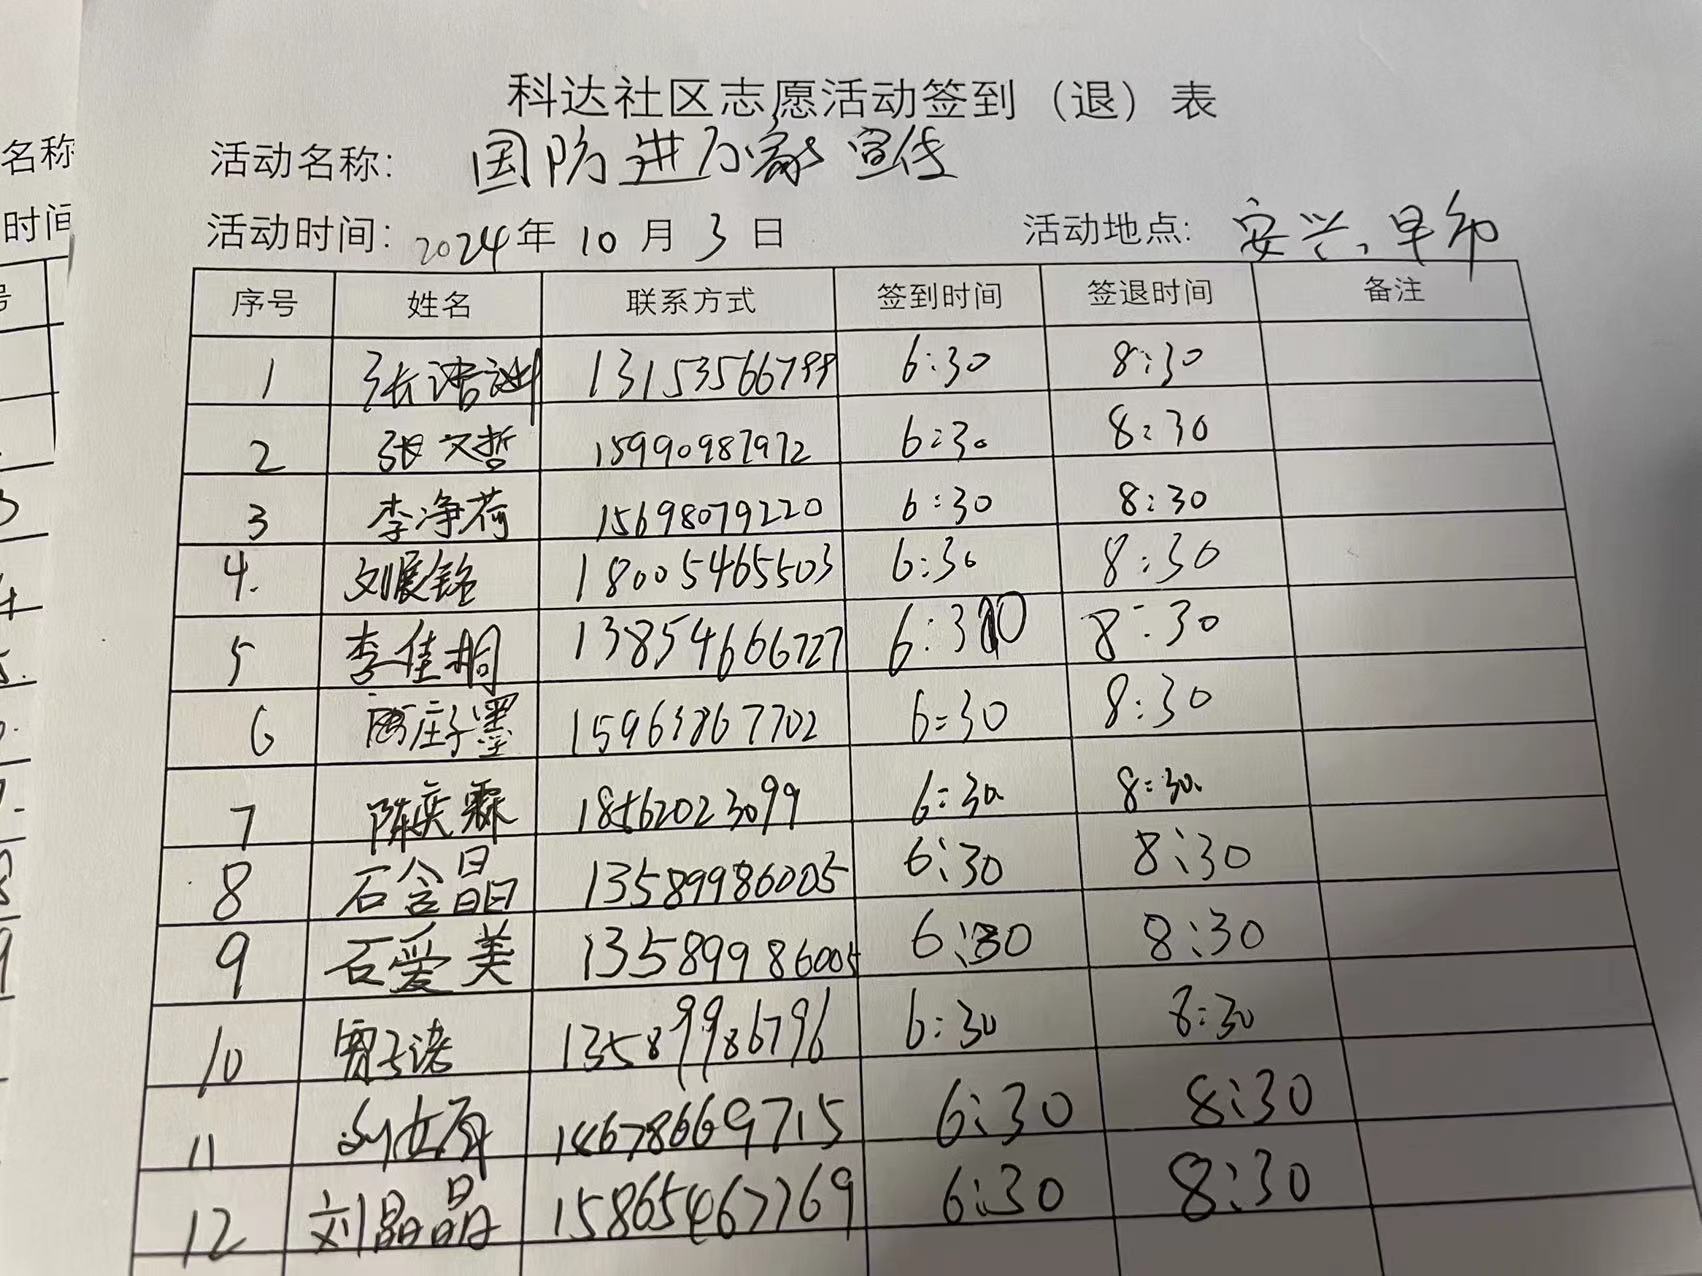 科达社区志愿活动签到（退）表
活动名称: 国防进万家宣传
活动时间: 2024年 10 月 3 日 活动地点: 安兴、早市
序号 姓名 联系方式 签到时间 签退时间 备注
1 张浩 13153566799 6:30 8:30
2 张文哲 15990987972 6:30 8:30
3 李净荷 15698079220 6:30 8:30
4. 刘展铭 18005465503 6:30 8:30
5 李佳桐 13854666727 6:30 8:30
6 庄子墨 15963867702 6:30 8:30
7 陈奕霖 18562023099 6:30 8:30
8 石含晶 13589986005 6:30 8:30
9 石爱美 13589986005 6:30 8:30
10 子诺 13589986796 6:30 8:30
11 14678669715 6:30 8:30
12 刘晶晶 15865467769 6:30 8:30
名称
时间
号